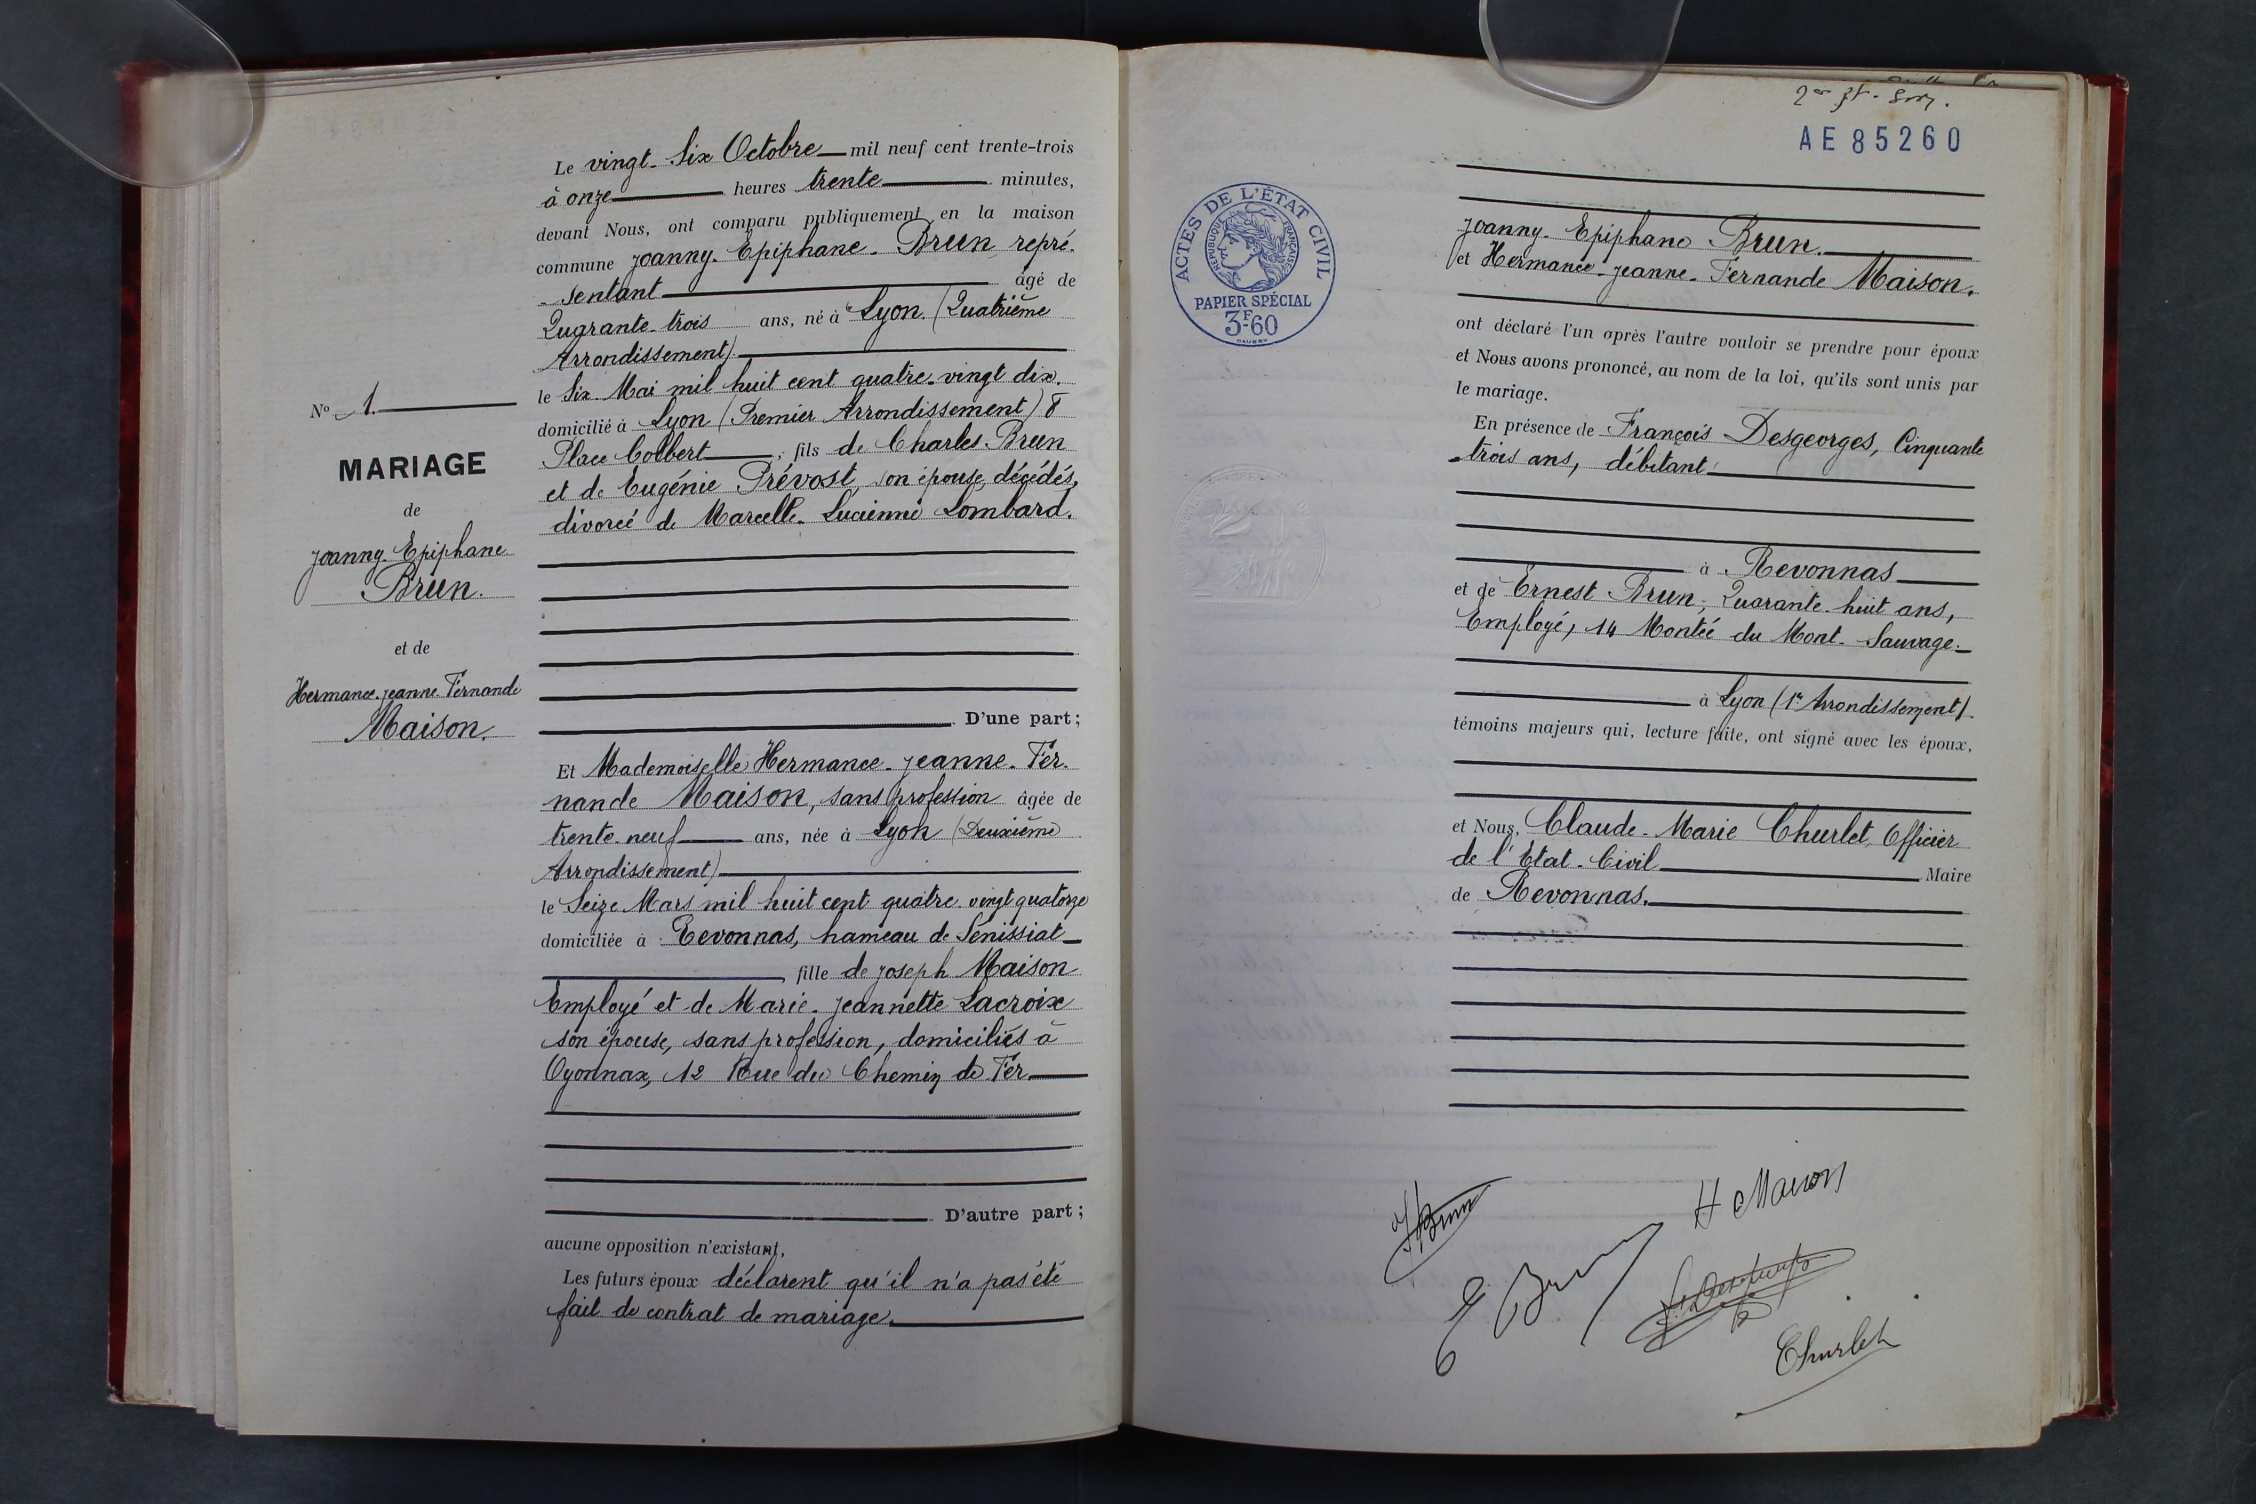 Le vingt-Six Octobre mil neuf cent trente-trois
à onze heures trente minutes,
devant Nous, ont comparu publiquement en la maison
commune Joanny-Epiphane-Brun, repré-
-sentant âgé de
Quarante-trois ans, né à Lyon (Quatrième
Arrondissement)
le Six Mai mil huit cent quatre-vingt dix.
domicilié à Lyon (Premier Arrondissement) 8
Place Colbert, fils de Charles Brun
et de Eugénie Prévost, son épouse, décédés,
divorcé de Marcelle-Lucienne Lombard.
D'une part;
No 1.
MARIAGE
de
Joanny-Epiphane
Brun.
et de
Hermance-Jeanne-Fernande
Maison.
Et Mademoiselle Hermance-Jeanne-Fer-
nande Maison, sans profession âgée de
trente-neuf ans, née à Lyon (Deuxième
Arrondissement)
le Seize Mars mil huit cent quatre vingt quatorze
domiciliée à Revonnas, hameau de Sénissiat
fille de Joseph Maison
Employé et de Marie-Jeannette Lacroix
son épouse, sans profession, domiciliés à
Oyonnax, 12 Rue du Chemin de Fer
D'autre part;
aucune opposition n'existant,
Les futurs époux déclarent qu'il n'a pas été
fait de contrat de mariage.
AE 85260
ACTES DE L'ÉTAT CIVIL
RÉPUBLIQUE FRANÇAISE
PAPIER SPÉCIAL
3F60
Joanny-Epiphane Brun.
et Hermance-Jeanne-Fernande Maison.
ont déclaré l'un après l'autre vouloir se prendre pour époux
et Nous avons prononcé, au nom de la loi, qu'ils sont unis par
le mariage.
En présence de François Desgeorges, Cinquante
-trois ans, débitant
à Revonnas
et de Ernest Brun, Quarante-huit ans,
Employé, 14 Montée du Mont-Sauvage
à Lyon (1er Arrondissement)
témoins majeurs qui, lecture faite, ont signé avec les époux,
et Nous, Claude-Marie Churlet, Officier
de l'Etat-Civil Maire
de Revonnas.
J Brun
H Maison
E Brun
Churlet